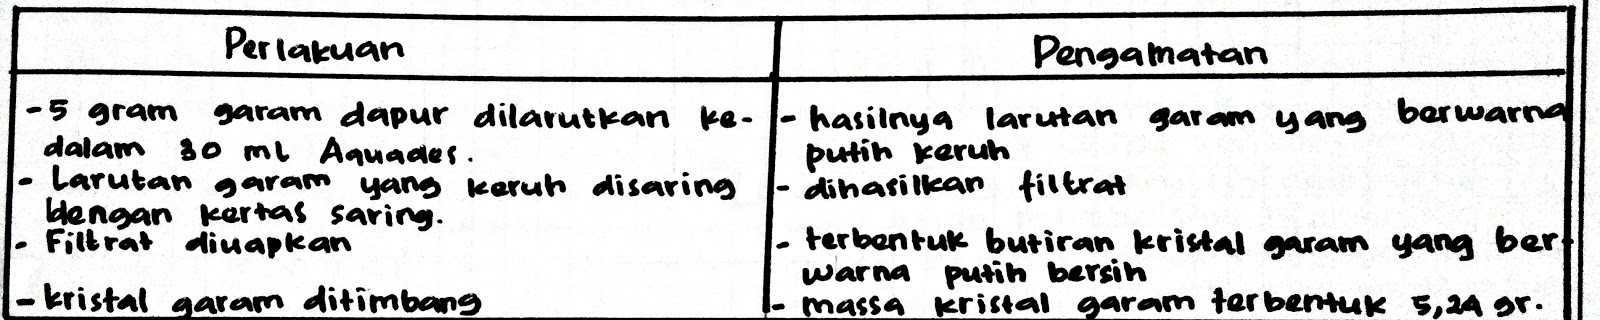 Perlakuan
Pengamatan
- 5 gram garam dapur dilarutkan ke-
dalam 30 ml Aquades.
- hasilnya larutan garam yang berwarna
putih keruh
- Larutan garam yang keruh disaring
dengan kertas saring.
- dihasilkan filtrat
- Filtrat diuapkan
- terbentuk butiran kristal garam yang ber-
warna putih bersih
- kristal garam ditimbang
- massa kristal garam terbentuk 5,24 gr.